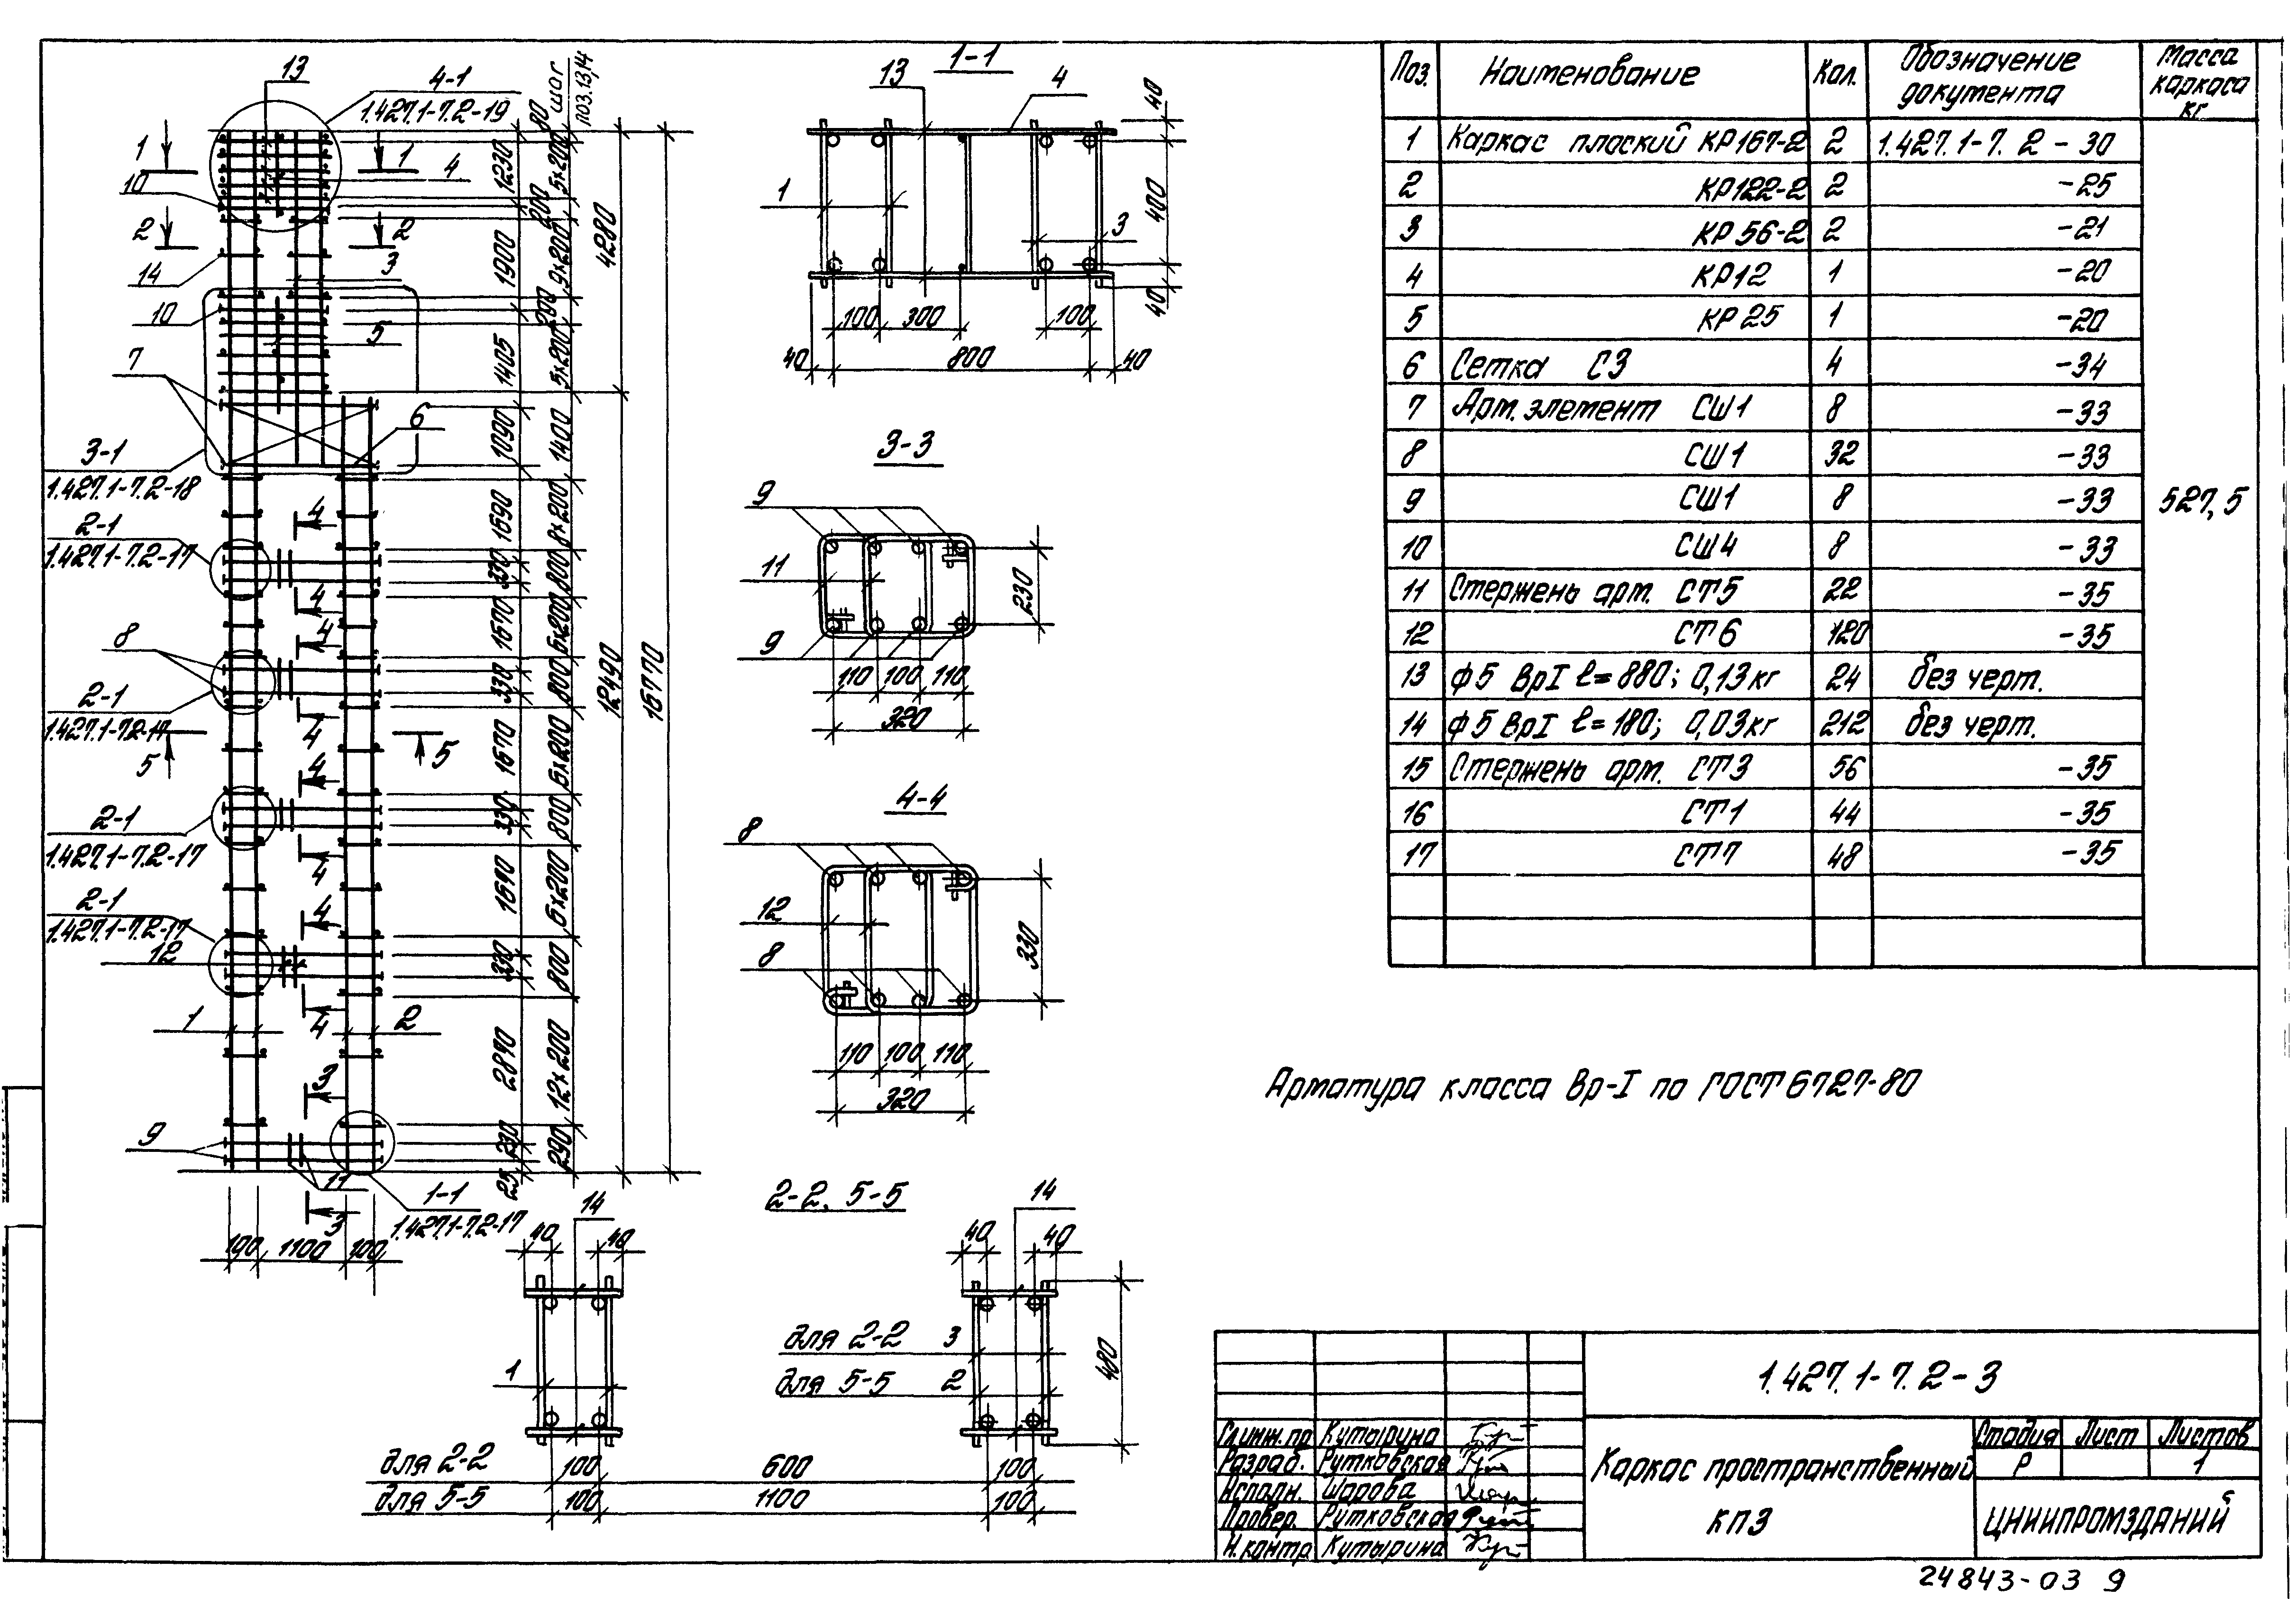 13
4-1
1.427.1-7.2-19
80
шаг
поз.13,14
1
1
4
10
2
2
14
3
10
5
7
6
3-1
1.427.1-7.2-18
4
2-1
1.427.1-7.2-17
4
8
4
2-1
1.427.1-7.2-17
4
5
5
4
2-1
1.427.1-7.2-17
4
2-1
1.427.1-7.2-17
4
12
4
1
2
3
9
11
1-1
1.427.1-7.2-17
3
100 1100 100
1230
200
1900
200
1405
1090
1690
330
1670
330
1670
330
1690
330
2890
230
25
5×200
9×200
5×200
1400
8×200
800
6×200
800
6×200
800
6×200
800
12×200
290
4280
12490
16770
1-1
13
4
1
3
40
400
40
100 300 100
40 800 40
3-3
9
11
9
230
110 100 110
320
4-4
8
12
8
330
110 100 110
320
2-2, 5-5
14
14
40 40
40 40
1
для 2-2 3
для 5-5 2
480
для 2-2 100 600 100
для 5-5 100 1100 100
Поз. Наименование Кол. Обозначение документа Масса каркаса кг
1 Каркас плоский КР167-2 2 1.427.1-7.2-30
2 КР122-2 2 -25
3 КР56-2 2 -21
4 КР12 1 -20
5 КР25 1 -20
6 Сетка С3 4 -34
7 Арм. элемент СШ1 8 -33
8 СШ1 32 -33
9 СШ1 8 -33
527,5
10 СШ4 8 -33
11 Стержень арм. СТ5 22 -35
12 СТ6 120 -35
13 ф5 ВрI ℓ=880; 0,13кг 24 без черт.
14 ф5 ВрI ℓ=180; 0,03кг 212 без черт.
15 Стержень арм. СТ3 56 -35
16 СТ1 44 -35
17 СТ7 48 -35
Арматура класса Вр-I по ГОСТ 6727-80
1.427.1-7.2-3
Гл.инж.пр Кутырина
Разраб. Рутковская
Исполн. Шарова
Провер. Рутковская
Н.контр. Кутырина
Каркас пространственный
КП3
Стадия Лист Листов
Р 1
ЦНИИПРОМЗДАНИЙ
24843-03 9